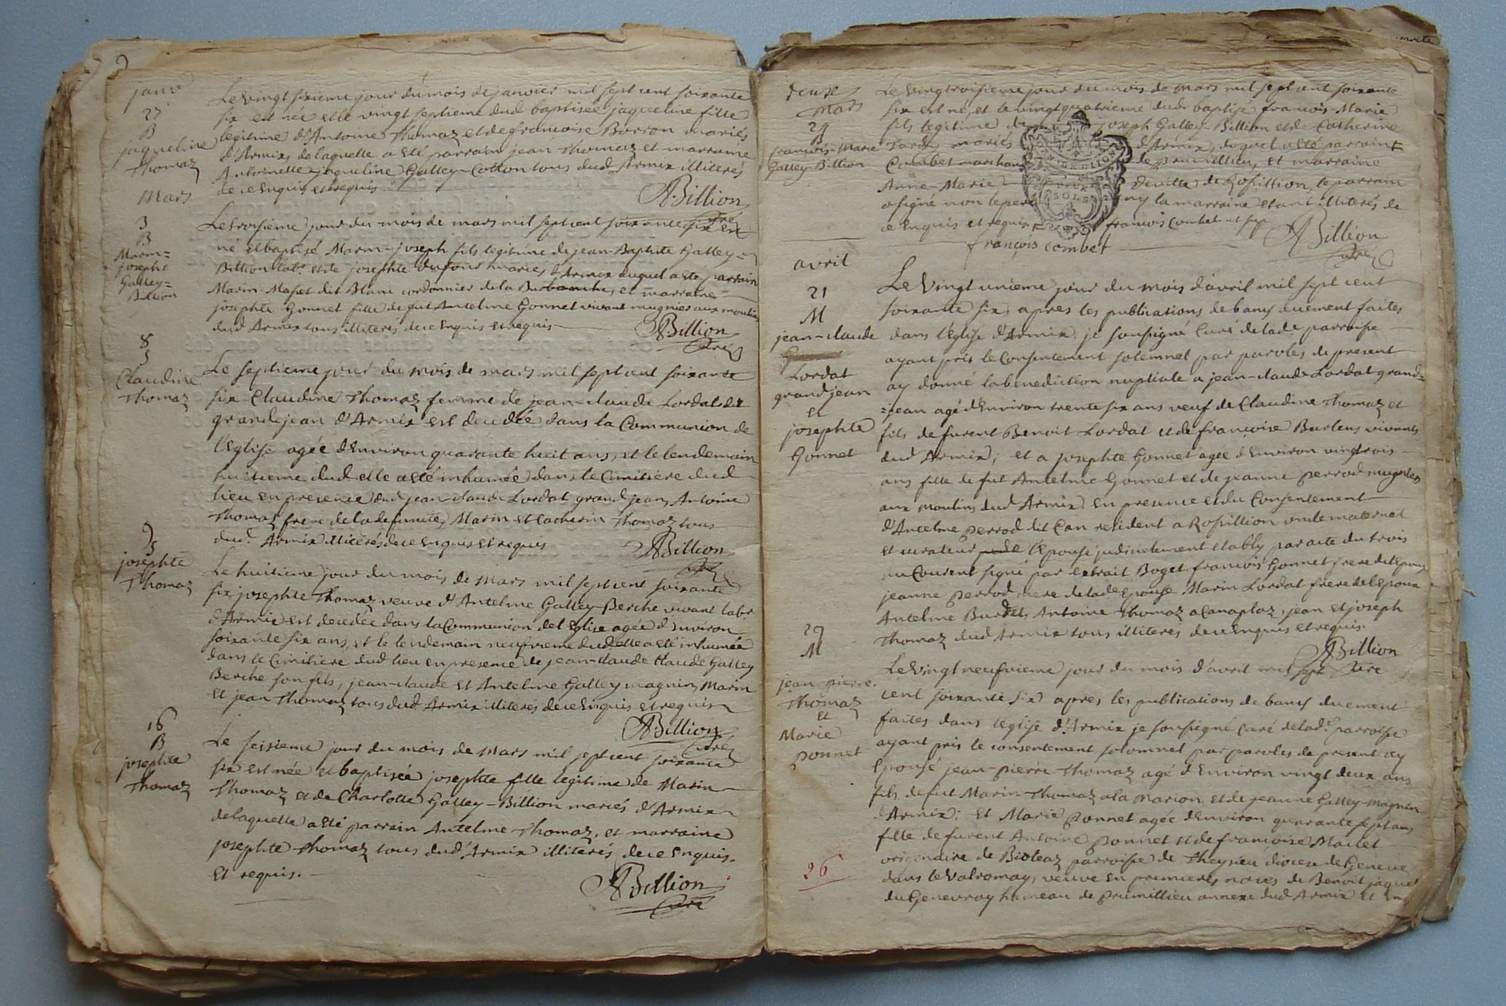 janv
27
B
jaqueline
Thomaz
Le vingt sixieme jour du mois de janvier mil sept cent soixante
six est née et le vingt septieme dud baptisée jaqueline fille
legitime d'Antoine Thomaz et de francoise Borron mariés
d'Armix de laquelle a eté parrain jean Thomaz et marraine
Antoinette jaqueline Gallay-Cotton tous dud Armix illiterés
de ce Enquis et requis
ABillion
curé
Mars
3
B
Marin=
joseph
Gallay=
Billion
Le troisieme jour du mois de mars mil sept cent soixante six est
né et baptisé Marin-joseph fils legitime de jean Baptiste Gallay=
Billion lab. et de josephte dufour mariés d'Armix auquel a eté parrain
Marin Masset dit Blanc cordonnier de la et marraine
josephte Gonnet fille de fut Antelme Gonnet vivant mugnier aux moulins
dud Armix tous illiterés de ce Enquis et requis
ABillion
curé
8
S
Claudine
Thomaz
Le septieme jour du mois de mars mil sept cent soixante
six Claudine Thomaz femme de jean-claude Lordat dit
grand jean d'Armix est decedée dans la Communion de
l'Eglise agée d'Environ quarante huit ans, et le lendemain
huitieme dud elle a eté inhumée dans le Cimitiere dud
lieu en presence dud jean-claude Lordat grand jean, Antoine
Thomaz frere de lade defunte, Marin et Catherin Thomaz tous
dud. Armix illiterés de ce Enquis et requis
ABillion
curé
9
S
josephte
Thomaz
Le huitieme jour du mois de mars mil sept cent soixante
six josephte Thomaz veuve d'Antelme Gallay-Berche vivant labr
d'Armix est decedée dans la Communion de l'Eglise agée d'Environ
soixante six ans, et le lendemain neufvieme dud elle a eté inhumée
dans le Cimitiere dud lieu en presence de jean-claude Gallay
Berche son fils, jean-claude et Antelme Gallay magnin, Marin
et jean Thomaz tous dud Armix illiterés de ce Enquis et requis
ABillion
curé
16
B
josephte
Thomaz
Le seisieme jour du mois de mars mil sept cent soixante
six est née et baptisée josephte fille legitime de Marin
Thomaz et de Charlotte Gallay-Billion mariés d'Armix
de laquelle a eté parrain Antelme Thomaz, et marraine
josephte Thomaz tous dud Armix illiterés de ce Enquis
et requis.
ABillion
curé
Mars
24
B
francois-Marie
Gallay-Billion
Le vingt troisieme jour du mois de mars mil sept cent soixante
six est né et le vingt quatrieme dud baptisé francois Marie
fils legitime de joseph Gallay Billion et de Catherine
mariés d'Armix, duquel a eté parrain
Combet marchand de Prumillieu, et marraine
Anne-Marie deville de Rossillion, le parrain
a signé non le pere ny la marraine etant illiterés de
ce Enquis et requis francois Combet
francois Combet
ABillion
curé
avril
21
M
jean-claude
Lordat
grand jean
et
josephte
Gonnet
Le vingt unieme jour du mois d'avril mil sept cent
soixante six, apres les publications de bans duement faites
dans l'Eglise d'Armix je soussigné Curé de lade parroisse
ayant pris le Consentement solemnel par paroles de present
ay donné la benediction nuptiale a jean-claude Lordat grand=
=jean agé d'Environ trente six ans veuf de Claudine Thomaz et
fils de furent Benoit Lordat et de françoise Burlens vivants
dud Armix; et a josephte Gonnet agée d'Environ vingt trois
ans fille de fut Antelme Gonnet et de jeanne perrod mugnier
aux moulins dud Armix, en presence et du Consentement
d'Antelme perrod dit Can resident a Rossillion oncle maternel
et curateur de l'Epouse judiciairement etably par acte du trois
du Courent signé par extrait Boget francois Gonnet frere de l'Epouse
jeanne perrod mere de lade Epouse Marin Lordat frere de l'Epoux
Antelme Burdet, Antoine Thomaz a Canaplaz, jean et joseph
Thomaz dud Armix tous illiterés de ce Enquis et requis
ABillion
curé
29
M
jean pierre
Thomaz
et
Marie
ponnet
Le vingt neufvieme jour du mois d'avril mil sept
cent soixante six apres les publications de bans duement
faites dans l'eglise d'Armix je soussigné Curé de lade parroisse
ayant pris le consentement solemnel par paroles de present ay
Epousé jean-pierre Thomaz agé d'Environ vingt deux ans
fils de fut Marin Thomaz a la Marion et de jeanne Gallay-magnin
d'Armix; et Marie ponnet agée d'Environ quarante sept ans
fille de furent Antoine ponnet et de francoise Maclet
originaire de Bioleaz parroisse de Theysieu diocese de Geneve
dans le Valromay, veuve en premieres noces de Benoit jaquet
du Genevray hameau de prumillieu annexe dud Armix et
26